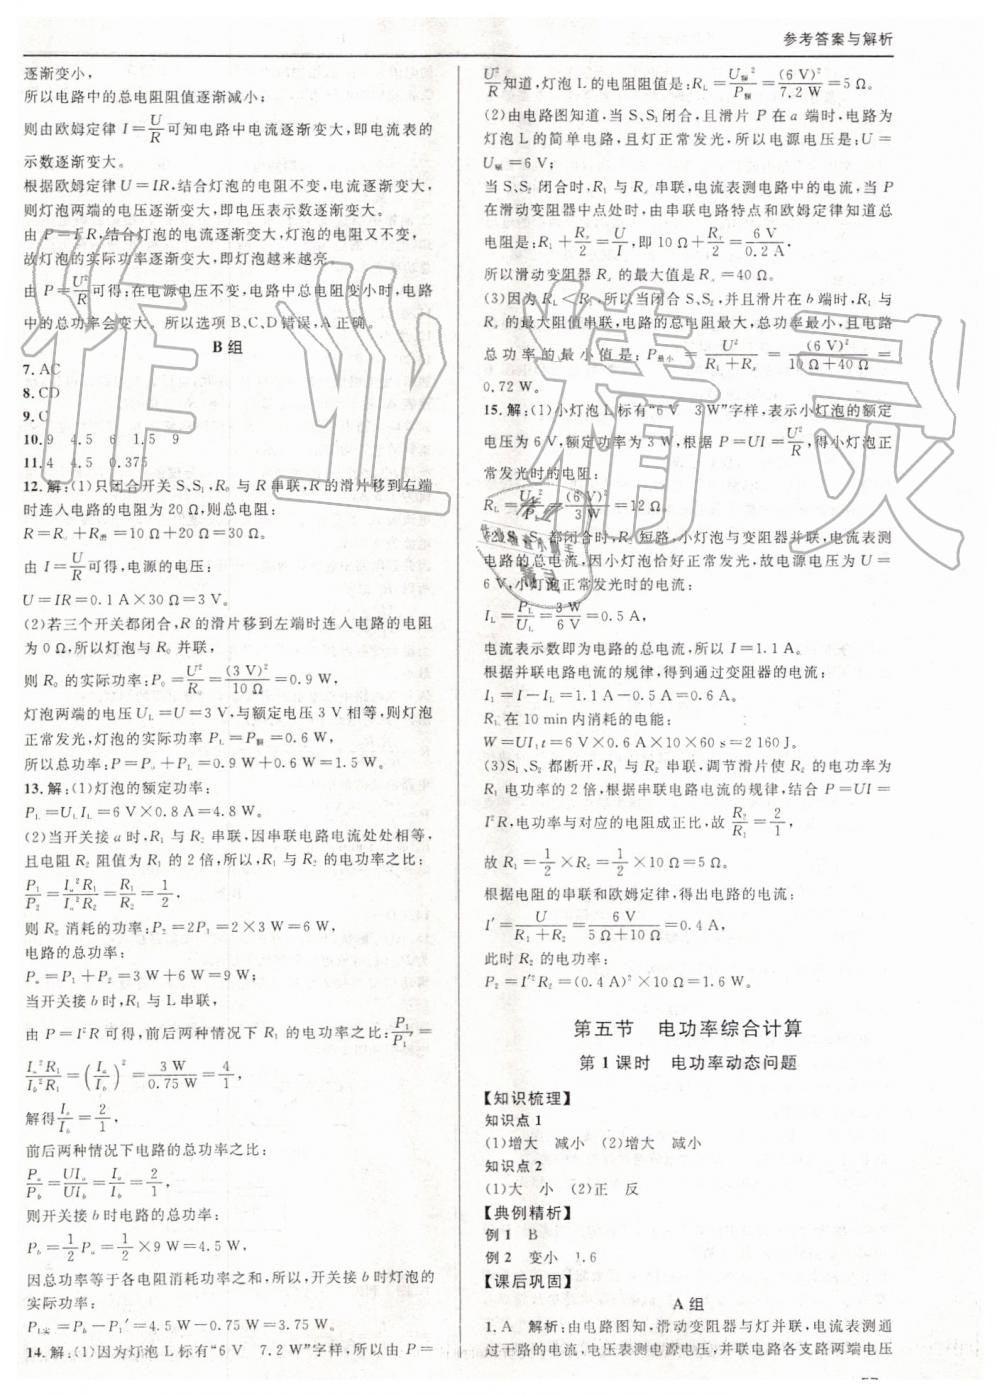 参考答案与解析
逐渐变小，
所以电路中的总电阻阻值逐渐减小；
则由欧姆定律 I=U/R 可知电路中电流逐渐变大，即电流表的
示数逐渐变大。
根据欧姆定律 U=IR，结合灯泡的电阻不变，电流逐渐变大，
则灯泡两端的电压逐渐变大，即电压表示数逐渐变大。
由 P=I²R，结合灯泡的电流逐渐变大，灯泡的电阻又不变，
故灯泡的实际功率逐渐变大，即灯泡越来越亮。
由 P=U²/R 可得：在电源电压不变，电路中总电阻变小时，电路
中的总功率会变大。所以选项 B、C、D 错误，A 正确。
B 组
7. AC
8. CD
9. C
10. 9 4.5 6 1.5 9
11. 4 4.5 0.375
12. 解：(1)只闭合开关 S、S₁，R₀ 与 R 串联，R 的滑片移到右端
时连入电路的电阻为 20 Ω，则总电阻：
R=R₀+R滑=10 Ω+20 Ω=30 Ω。
由 I=U/R 可得，电源的电压：
U=IR=0.1 A×30 Ω=3 V。
(2)若三个开关都闭合，R 的滑片移到左端时连入电路的电阻
为 0 Ω，所以灯泡与 R₀ 并联，
则 R₀ 的实际功率：P₀=U²/R₀=(3 V)²/10 Ω=0.9 W，
灯泡两端的电压 U_L=U=3 V，与额定电压 3 V 相等，则灯泡
正常发光，灯泡的实际功率 P_L=P额=0.6 W，
所以总功率：P=P₀+P_L=0.9 W+0.6 W=1.5 W。
13. 解：(1)灯泡的额定功率：
P_L=U_L I_L=6 V×0.8 A=4.8 W。
(2)当开关接 a 时，R₁ 与 R₂ 串联，因串联电路电流处处相等，
且电阻 R₂ 阻值为 R₁ 的 2 倍，所以，R₁ 与 R₂ 的电功率之比：
P₁/P₂=I_a²R₁/I_a²R₂=R₁/R₂=1/2，
则 R₂ 消耗的功率：P₂=2P₁=2×3 W=6 W，
电路的总功率：
P_a=P₁+P₂=3 W+6 W=9 W；
当开关接 b 时，R₁ 与 L 串联，
由 P=I²R 可得，前后两种情况下 R₁ 的电功率之比：P₁/P₁′=
I_a²R₁/I_b²R₁=(I_a/I_b)²=3 W/0.75 W=4/1，
解得 I_a/I_b=2/1，
前后两种情况下电路的总功率之比：
P_a/P_b=UI_a/UI_b=I_a/I_b=2/1，
则开关接 b 时电路的总功率：
P_b=1/2P_a=1/2×9 W=4.5 W，
因总功率等于各电阻消耗功率之和，所以，开关接 b 时灯泡的
实际功率：
P_L实=P_b-P₁′=4.5 W-0.75 W=3.75 W。
14. 解：(1)因为灯泡 L 标有“6 V 7.2 W”字样，所以由 P=
U²/R 知道，灯泡 L 的电阻阻值是：R_L=U额²/P额=(6 V)²/7.2 W=5 Ω。
(2)由电路图知道，当 S、S₁ 闭合，且滑片 P 在 a 端时，电路为
灯泡 L 的简单电路，且灯正常发光，所以电源电压是：U=
U额=6 V；
当 S、S₂ 闭合时，R₁ 与 R_x 串联，电流表测电路中的电流，当 P
在滑动变阻器中点处时，由串联电路特点和欧姆定律知道总
电阻是：R₁+R_x/2=U/I，即 10 Ω+R_x/2=6 V/0.2 A，
所以滑动变阻器 R_x 的最大值是 R_x=40 Ω。
(3)因为 R_L＜R₁，所以当闭合 S、S₂，并且滑片在 b 端时，R₁ 与
R_x 的最大阻值串联，电路的总电阻最大，总功率最小，且电路
总功率的最小值是：P最小=U²/(R₁+R_x)=(6 V)²/(10 Ω+40 Ω)=
0.72 W。
15. 解：(1)小灯泡 L 标有“6 V 3 W”字样，表示小灯泡的额定
电压为 6 V，额定功率为 3 W，根据 P=UI=U²/R，得小灯泡正
常发光时的电阻：
R_L=U_L²/P_L=(6 V)²/3 W=12 Ω。
(2)S₁、S₂ 都闭合时，R₁ 短路，小灯泡与变阻器并联，电流表测
电路的总电流，因小灯泡恰好正常发光，故电源电压为 U=
6 V，小灯泡正常发光时的电流：
I_L=P_L/U_L=3 W/6 V=0.5 A，
电流表示数即为电路的总电流，所以 I=1.1 A。
根据并联电路电流的规律，得到通过变阻器的电流：
I₁=I-I_L=1.1 A-0.5 A=0.6 A。
R_L 在 10 min 内消耗的电能：
W=UI₁t=6 V×0.6 A×10×60 s=2 160 J。
(3)S₁、S₂ 都断开，R₁ 与 R₂ 串联，调节滑片使 R₂ 的电功率为
R₁ 电功率的 2 倍，根据串联电路电流的规律，结合 P=UI=
I²R，电功率与对应的电阻成正比，故 R₂/R₁=2/1，
故 R₁=1/2×R₂=1/2×10 Ω=5 Ω。
根据电阻的串联和欧姆定律，得出电路的电流：
I′=U/(R₁+R₂)=6 V/(5 Ω+10 Ω)=0.4 A，
此时 R₂ 的电功率：
P₂=I′²R₂=(0.4 A)²×10 Ω=1.6 W。
第五节 电功率综合计算
第 1 课时 电功率动态问题
【知识梳理】
知识点 1
(1)增大 减小 (2)增大 减小
知识点 2
(1)大 小 (2)正 反
【典例精析】
例 1 B
例 2 变小 1.6
【课后巩固】
A 组
1. A 解析：由电路图知，滑动变阻器与灯并联，电流表测通
过干路的电流，电压表测电源电压，并联电路各支路两端电压
作业精灵